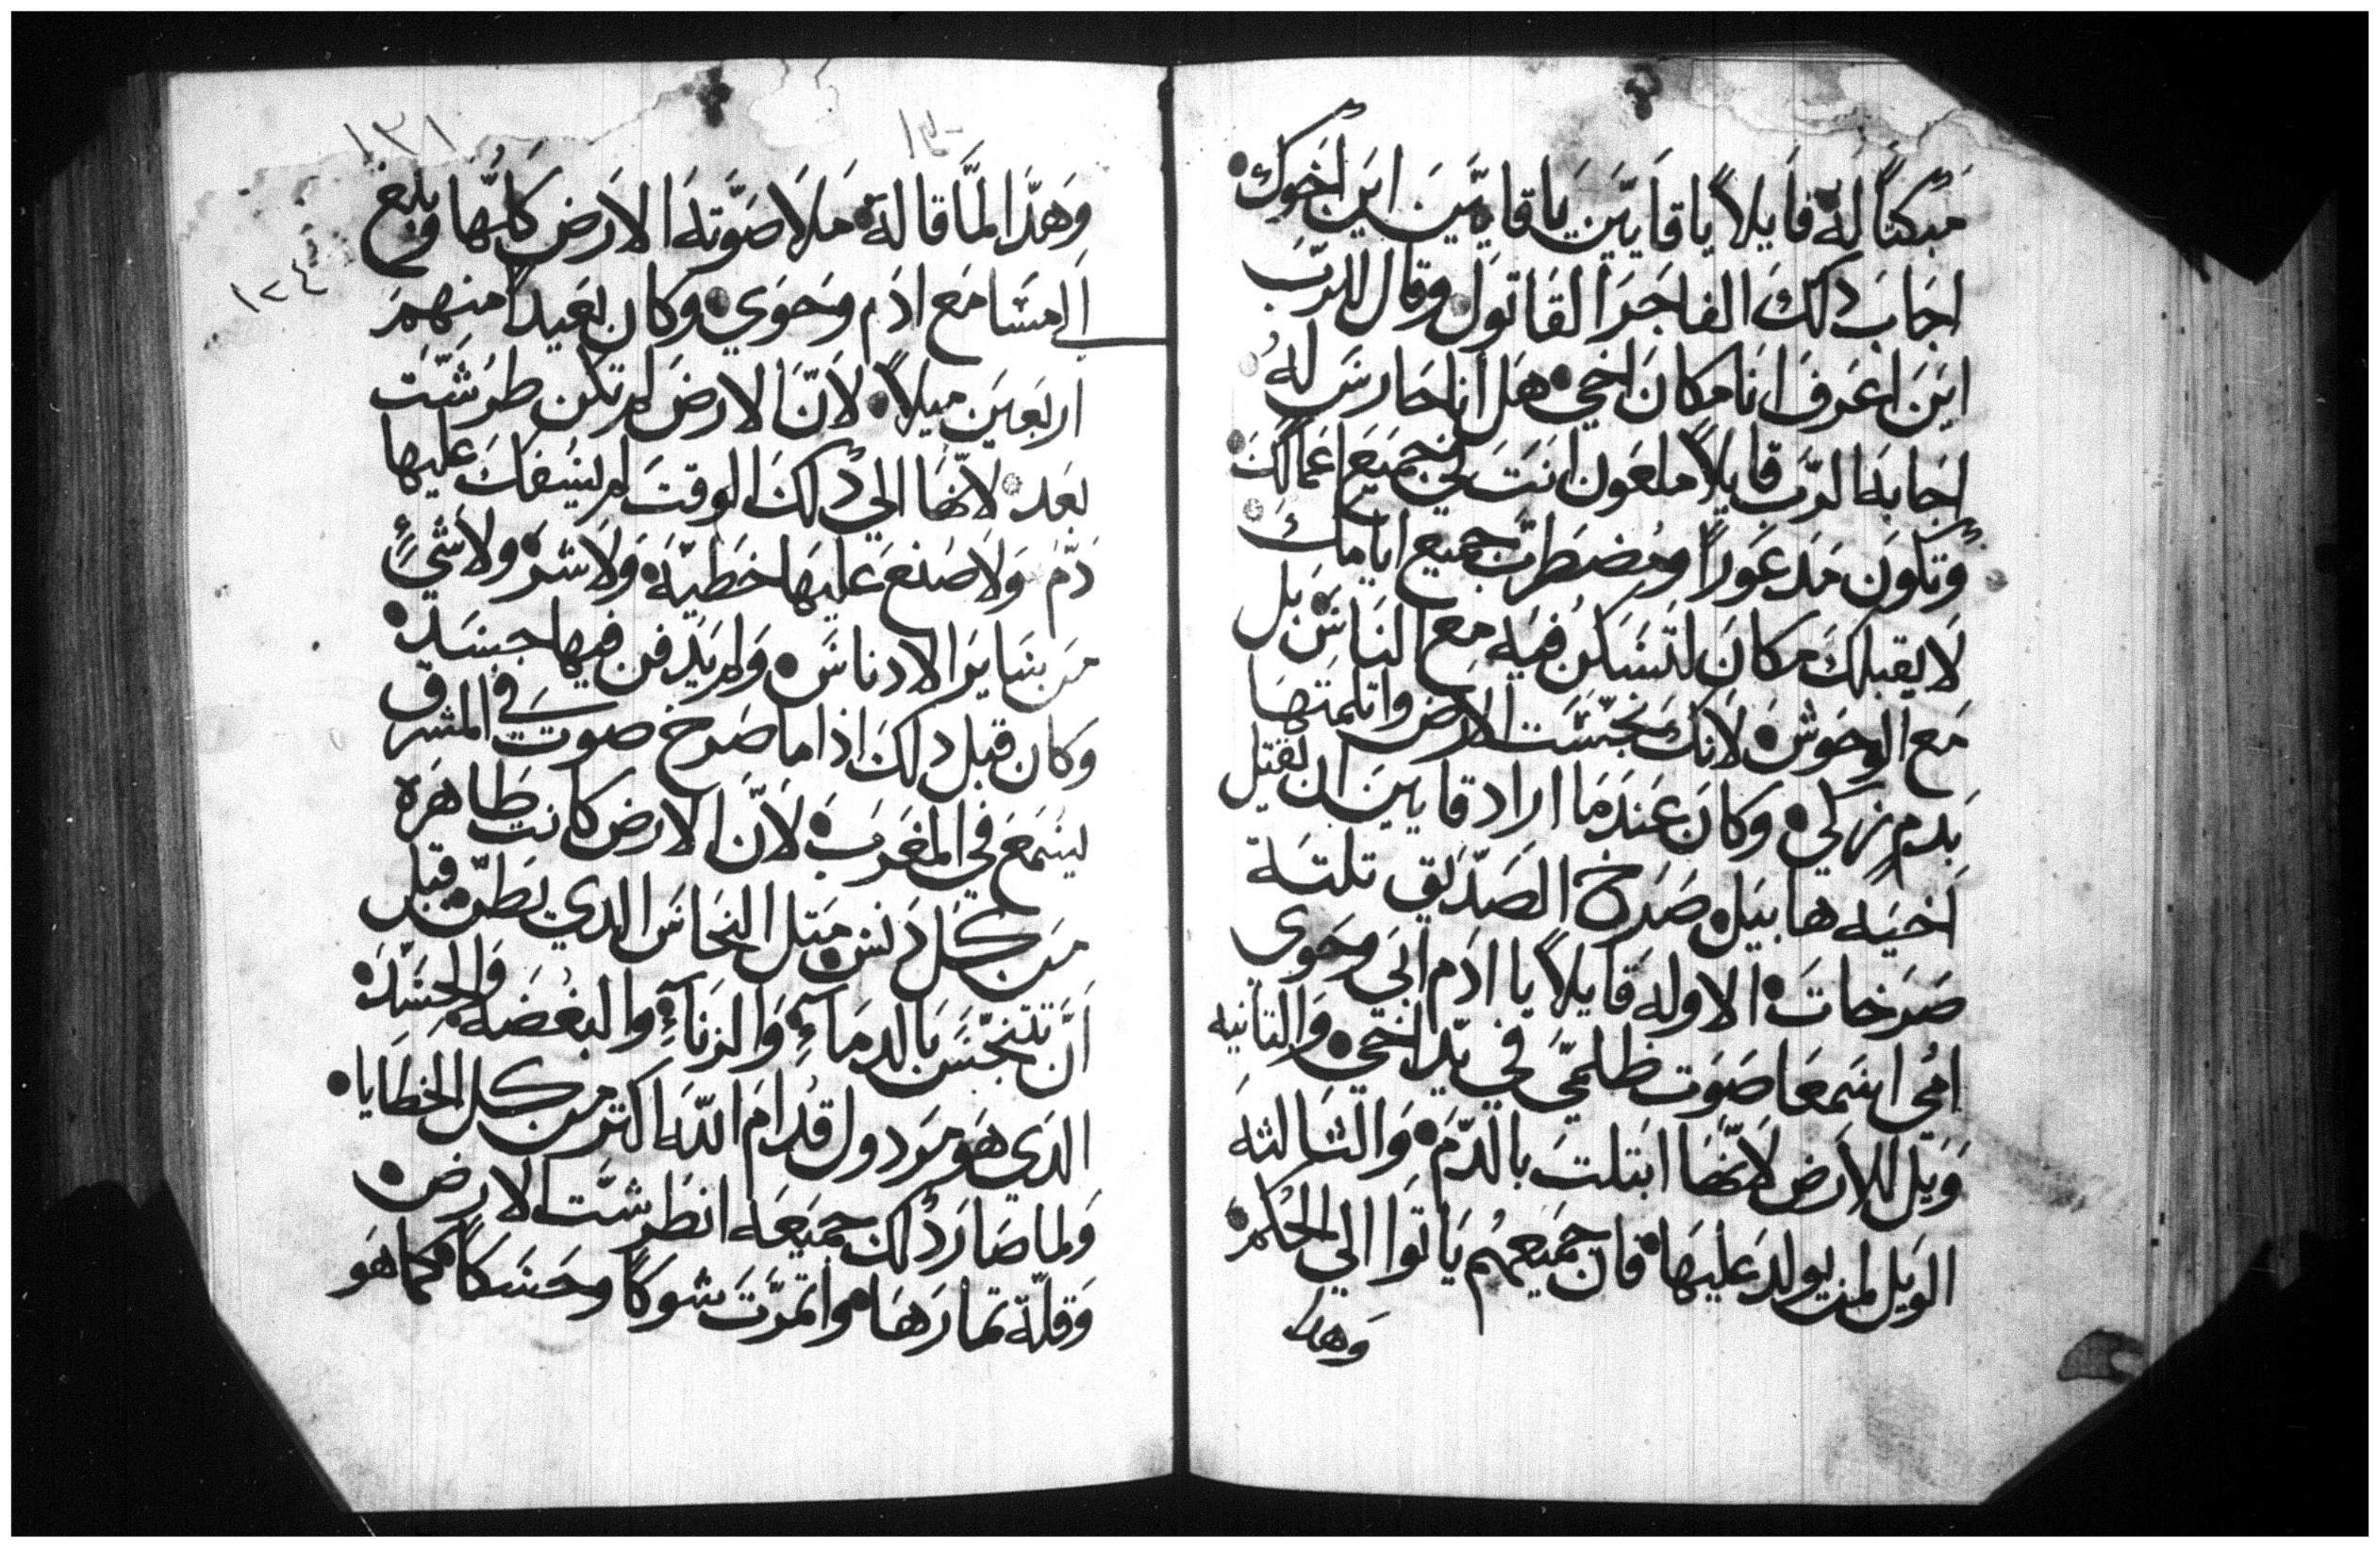 مبكتاً لهُ قايلاً يا قايين يا قايين اين اخوك
اجاب دلك الفاجر القاتول وقال للرب
اين اعرف انا مكان اخي هل انا حارس له
اجابه الرب قايلاً ملعون انت في جميع اعمالك
وتكون مدعوراً ومضطرب جميع ايامك
لا يقبلك مكان لتسكن فيه مع الناس بل
مع الوحوش لانك نجست الارض واتلمتها
بدم زكي وكان عندما اراد قايين ان يقتل
اخيه هابيل صرخ الصديق تلتة
صرخات الاوله قايلاً يا ادم ابي وحوى
امي اسمعا صوت ظلمي في يد اخي والتانيه
ويل للارض لانها ابتلت بالدم والثالثه
الويل لمن يولد عليها فان جميعهم ياتوا الي الحكم
وهدا
١٣١
١٢٤
وهدا لما قاله ملا صوته الارض كلها وبلغ
الي مسامع ادم وحوي وكان بعيداً منهم
اربعين ميلاً لان الارض لم تكن طرشت
بعد لانها الي دلك الوقت لم يسفك عليها
دم ولا صنع عليها خطيه ولا شر ولا شيء
من ساير الادناس ولم يدفن فيها جسد
وكان قبل دلك اذا ما صرخ صوت في المشرق
يسمع في المغرب لان الارض كانت طاهره
من كل دنس متل النحاس الدي يطن قبل
ان تتنجس بالدماء والزناء والبغضه والحسد
الدي هو مردول قدام الله اكتر من كل الخطايا
ولما صار دلك جميعه انطرشت الارض
وقلة تمارها واتمرت شوكاً وحسكاً كما هو